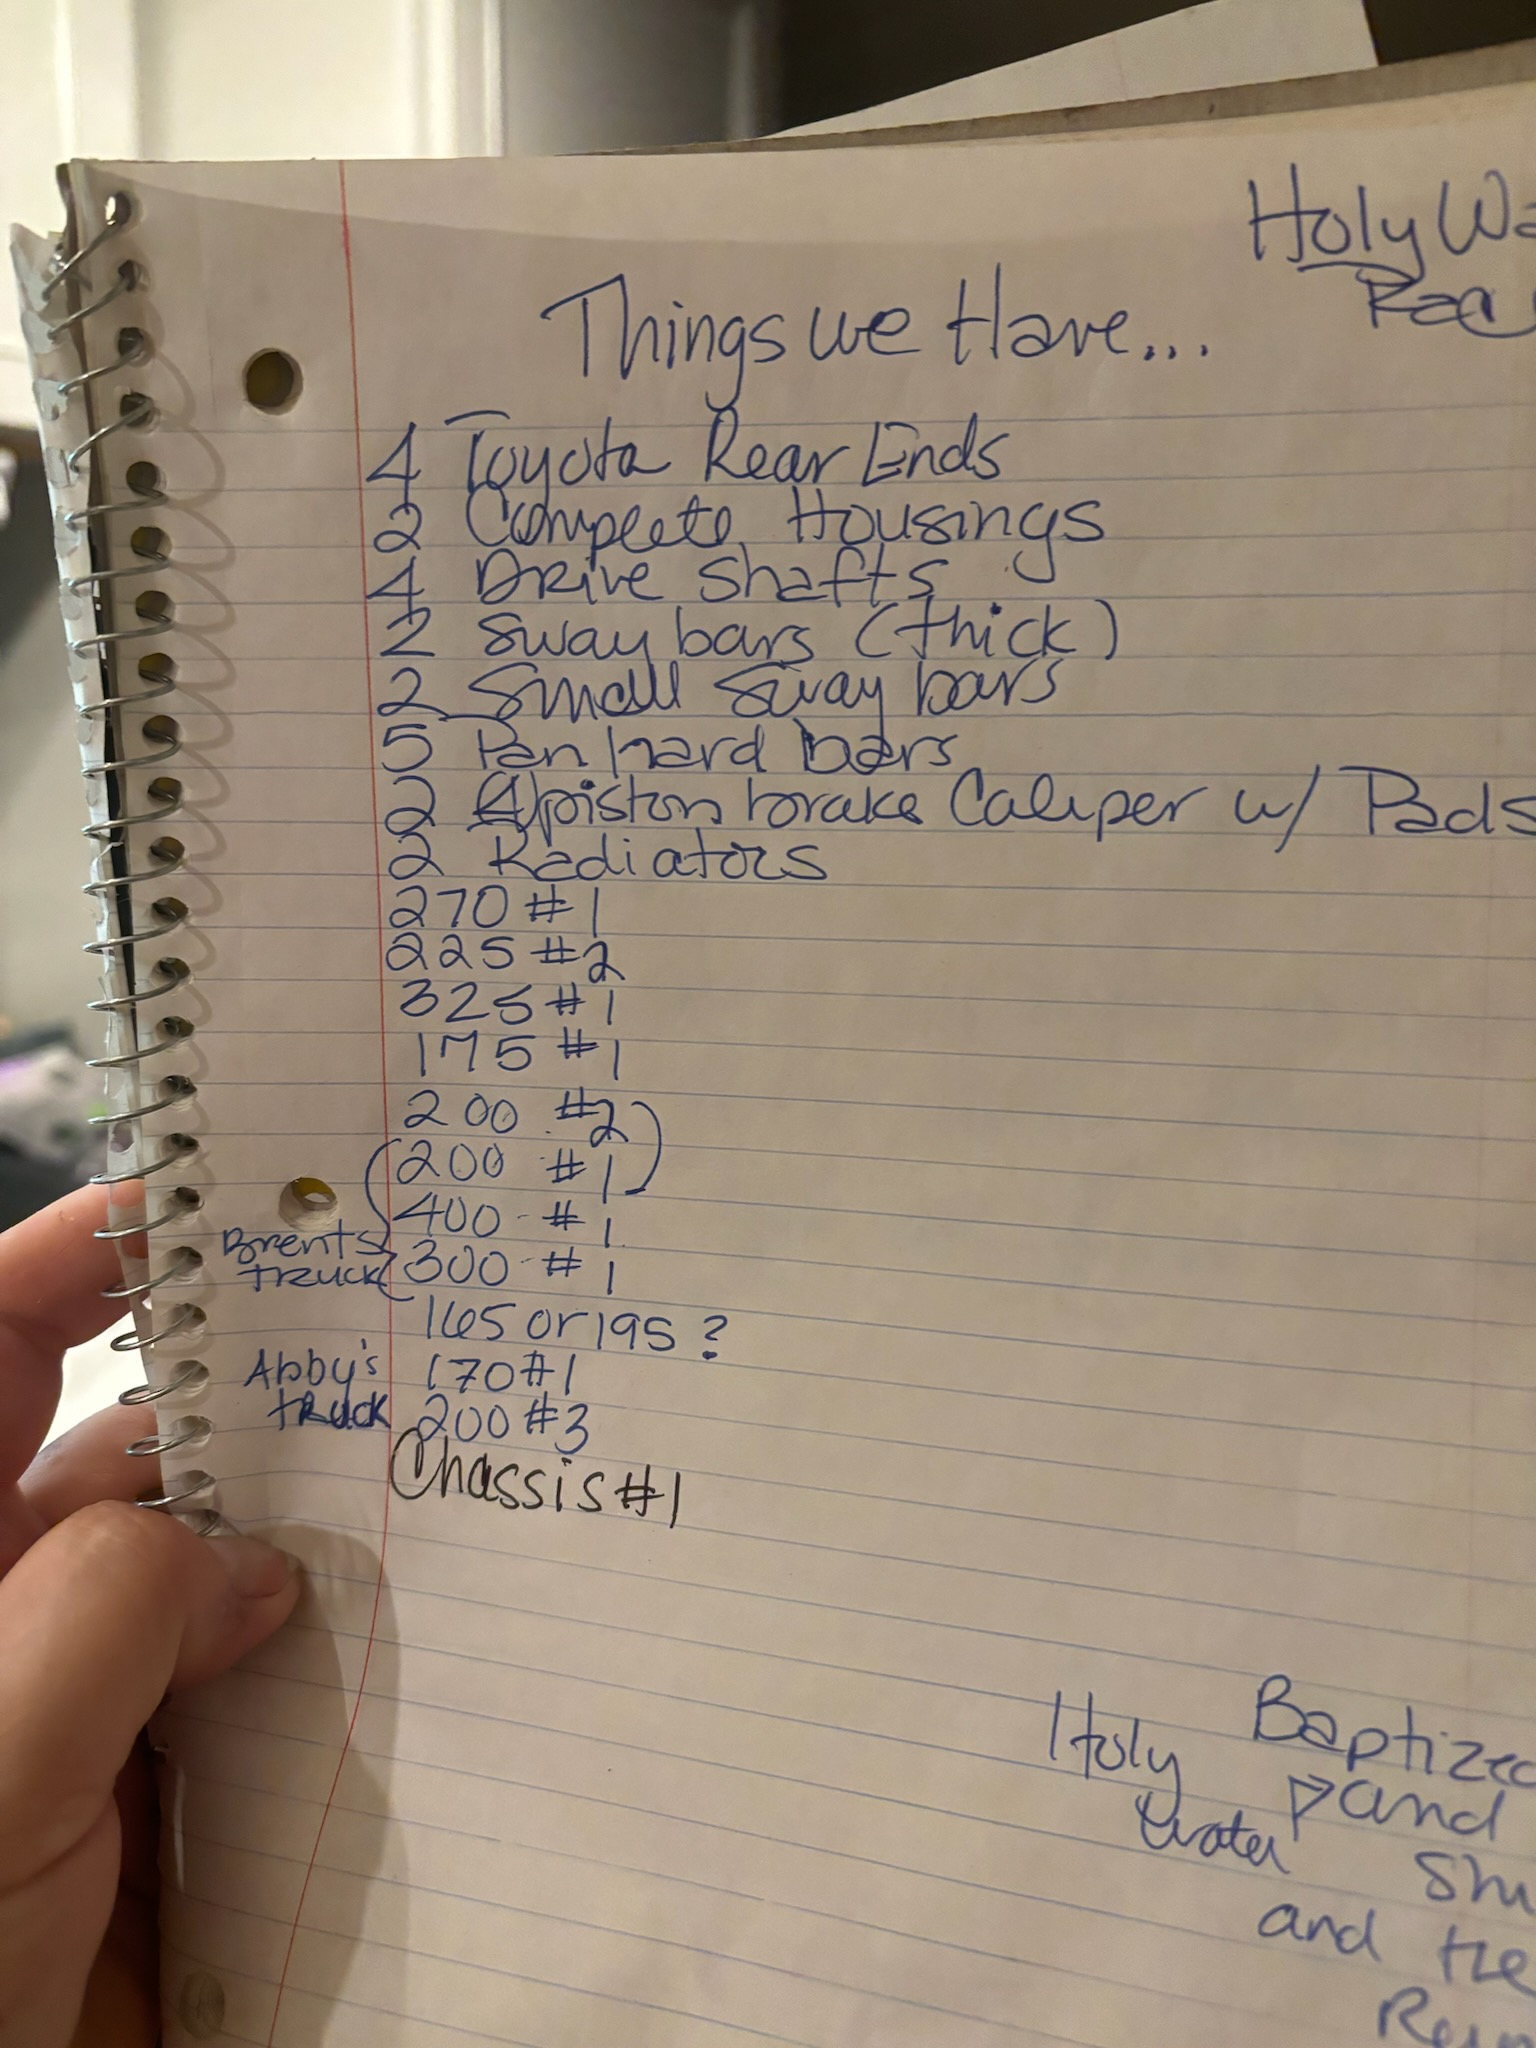 Holy Wa
Rac
Things we Have...
4 Toyota Rear Ends
2 Compleete Housings
4 Drive shafts
2 Sway bars (thick)
2 Small Sway bars
5 Panhard bars
2 4 piston brake Caliper w/ Pads
2 Radiators
270 #1
225 #2
325 #1
175 #1
200 #2
200 #1
400 #1
Brents
truck 300 #1
165 or 195 ?
Abby's 170 #1
truck 200 #3
Chassis #1
Baptized
Holy and
water
and the